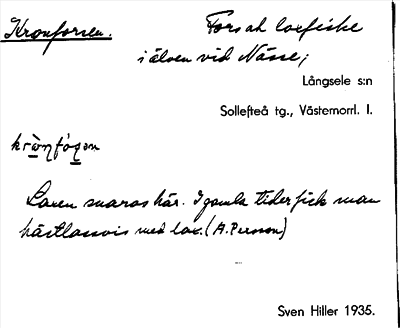 Kronforsen.
Fors ah laxfiske
i älven vid Nässe;
Långsele s:n
Sollefteå tg., Västernorrl. l.
Laxen snaras här. I gamla tider fick man
hästlassvis med lax. (A. Persson)
Sven Hiller 1935.